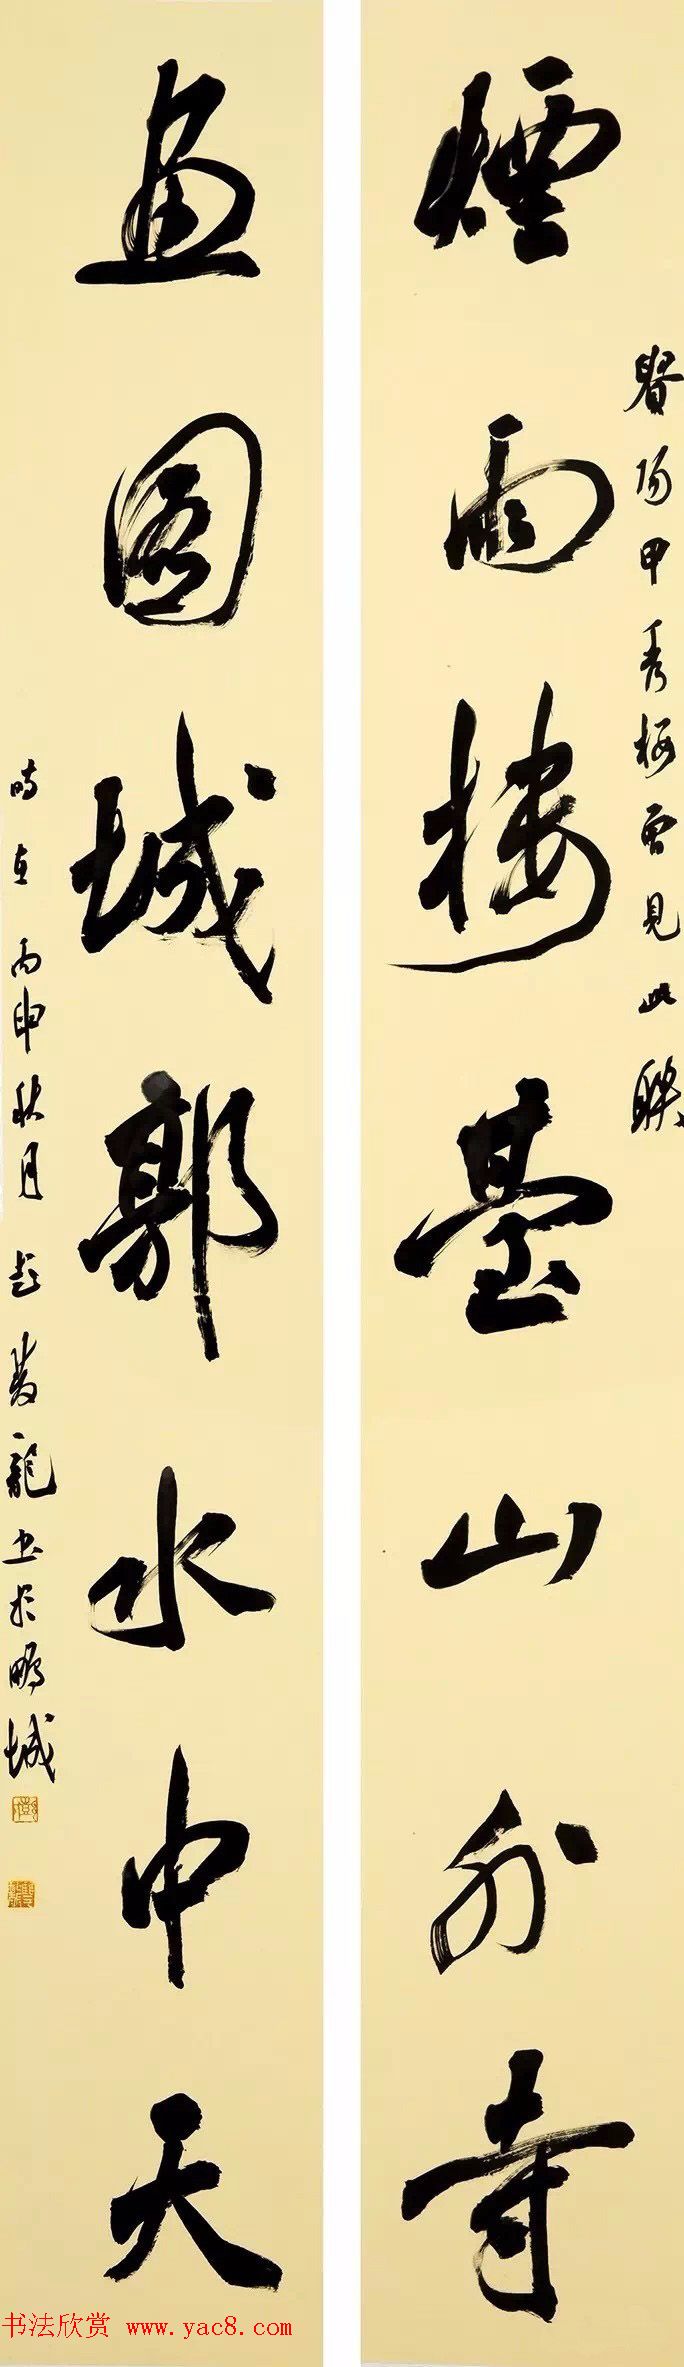 貴陽甲秀楼曾見此聯
煙雨楼臺山外寺
畫圖城郭水中天
時在丙申秋月 龍书於鹏城
书法欣赏 www.yac8.com